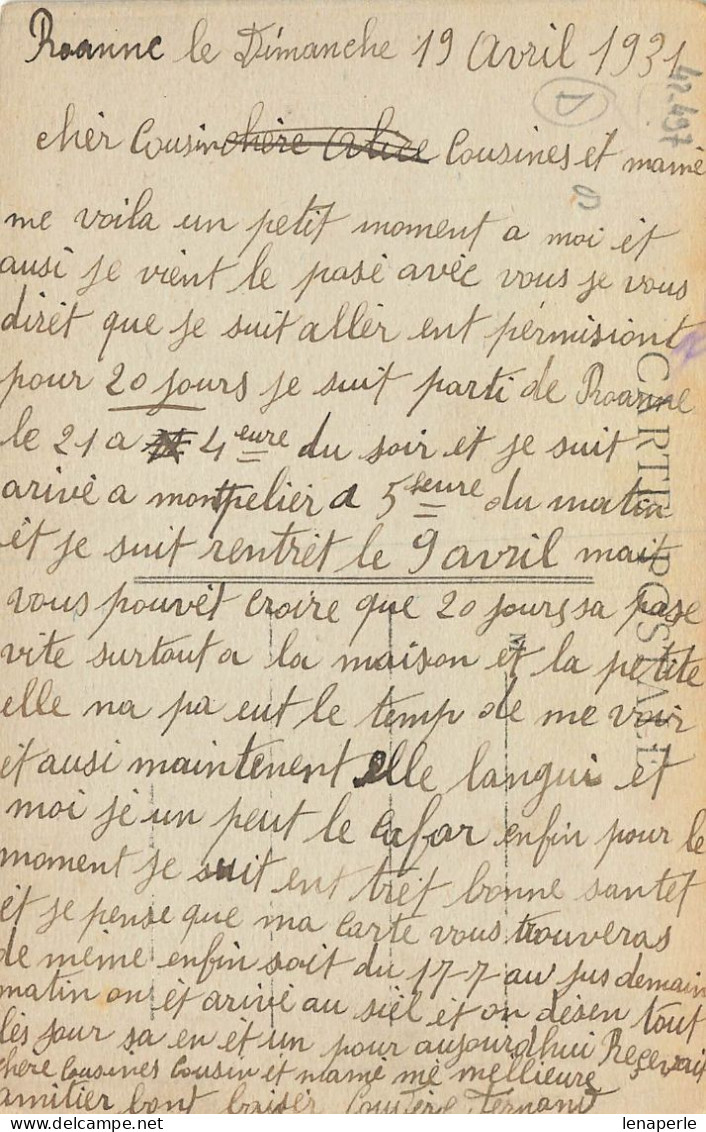 Roanne le Dimanche 19 Avril 1931
42.497
D
cher Cousin chère Alice Cousines et mamé
me voila un petit moment a moi et
ausi je vient le pasé avéc vous je vous
dirèt que je suit allèr ent pérmisiont
pour 20 jours je suit parti de Roanne
le 21 a 4 eure du soir et je suit
arivé a montpelier a 5 heure du matin
èt je suit rentrét le 9 avril mait
vous pouvét croire que 20 jours sa pase
vite surtout a la maison et la petite
elle na pa eut le temp de me voir
ét ausi maintenent elle langui et
moi jé un peut le cafar enfin pour le
moment je suit ent trét bonne santet
ét je pense que ma carte vous trouveras
de mème enfin soit du 17-7 au jus demain
matin on ét arivé au siél et on désen tout
lés jour sa en ét un pour aujourdhui Reçevait
chere Cousines Cousin ét mamé mé mellieure
amitier bont baiser Fernant
CARTE POSTALE
M
lenaperle